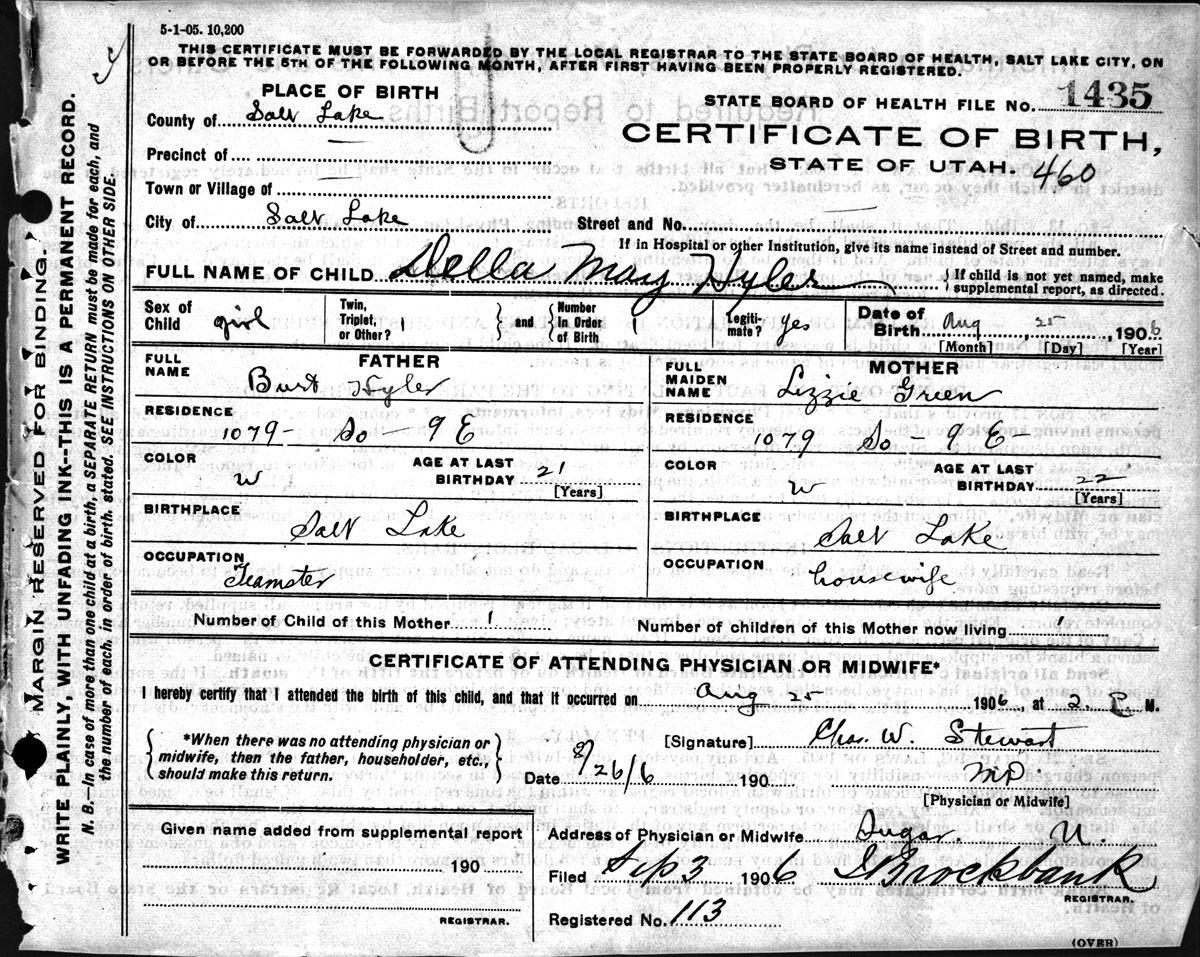 5-1-05. 10,200
THIS CERTIFICATE MUST BE FORWARDED BY THE LOCAL REGISTRAR TO THE STATE BOARD OF HEALTH, SALT LAKE CITY, ON
OR BEFORE THE 5TH OF THE FOLLOWING MONTH, AFTER FIRST HAVING BEEN PROPERLY REGISTERED.
PLACE OF BIRTH
County of Salt Lake
Precinct of
Town or Village of
City of Salt Lake
STATE BOARD OF HEALTH FILE NO. 1435
CERTIFICATE OF BIRTH,
STATE OF UTAH. 460
Street and No.
If in Hospital or other Institution, give its name instead of Street and number.
FULL NAME OF CHILD Della May Hyler { If child is not yet named, make
supplemental report, as directed.
Sex of Child girl
Twin, Triplet, or Other? 1 } and { Number in Order of Birth 1
Legitimate? yes
Date of Birth Aug 25 1906
[Month] [Day] [Year]
FATHER
FULL NAME Burt Hyler
RESIDENCE
1079- So - 9 E
COLOR W
AGE AT LAST BIRTHDAY 21
[Years]
BIRTHPLACE
Salt Lake
OCCUPATION
Teamster
MOTHER
FULL MAIDEN NAME Lizzie Green
RESIDENCE
1079 So - 9 E -
COLOR W
AGE AT LAST BIRTHDAY 22
[Years]
BIRTHPLACE
Salt Lake
OCCUPATION
housewife
Number of Child of this Mother 1
Number of children of this Mother now living 1
CERTIFICATE OF ATTENDING PHYSICIAN OR MIDWIFE*
I hereby certify that I attended the birth of this child, and that it occurred on Aug 25 1906, at 2 P M.
{ *When there was no attending physician or
midwife, then the father, householder, etc.,
should make this return. }
[Signature] Chas. W. Stewart
Date 8/26/6 190 MD
[Physician or Midwife]
Given name added from supplemental report
190
REGISTRAR.
Address of Physician or Midwife Sugar U.
Filed Sep 3 1906 Brockbank
REGISTRAR.
Registered No. 113
(OVER)
MARGIN RESERVED FOR BINDING.
WRITE PLAINLY, WITH UNFADING INK--THIS IS A PERMANENT RECORD.
N. B.--In case of more than one child at a birth, a SEPARATE RETURN must be made for each, and
the number of each, in order of birth, stated. SEE INSTRUCTIONS ON OTHER SIDE.